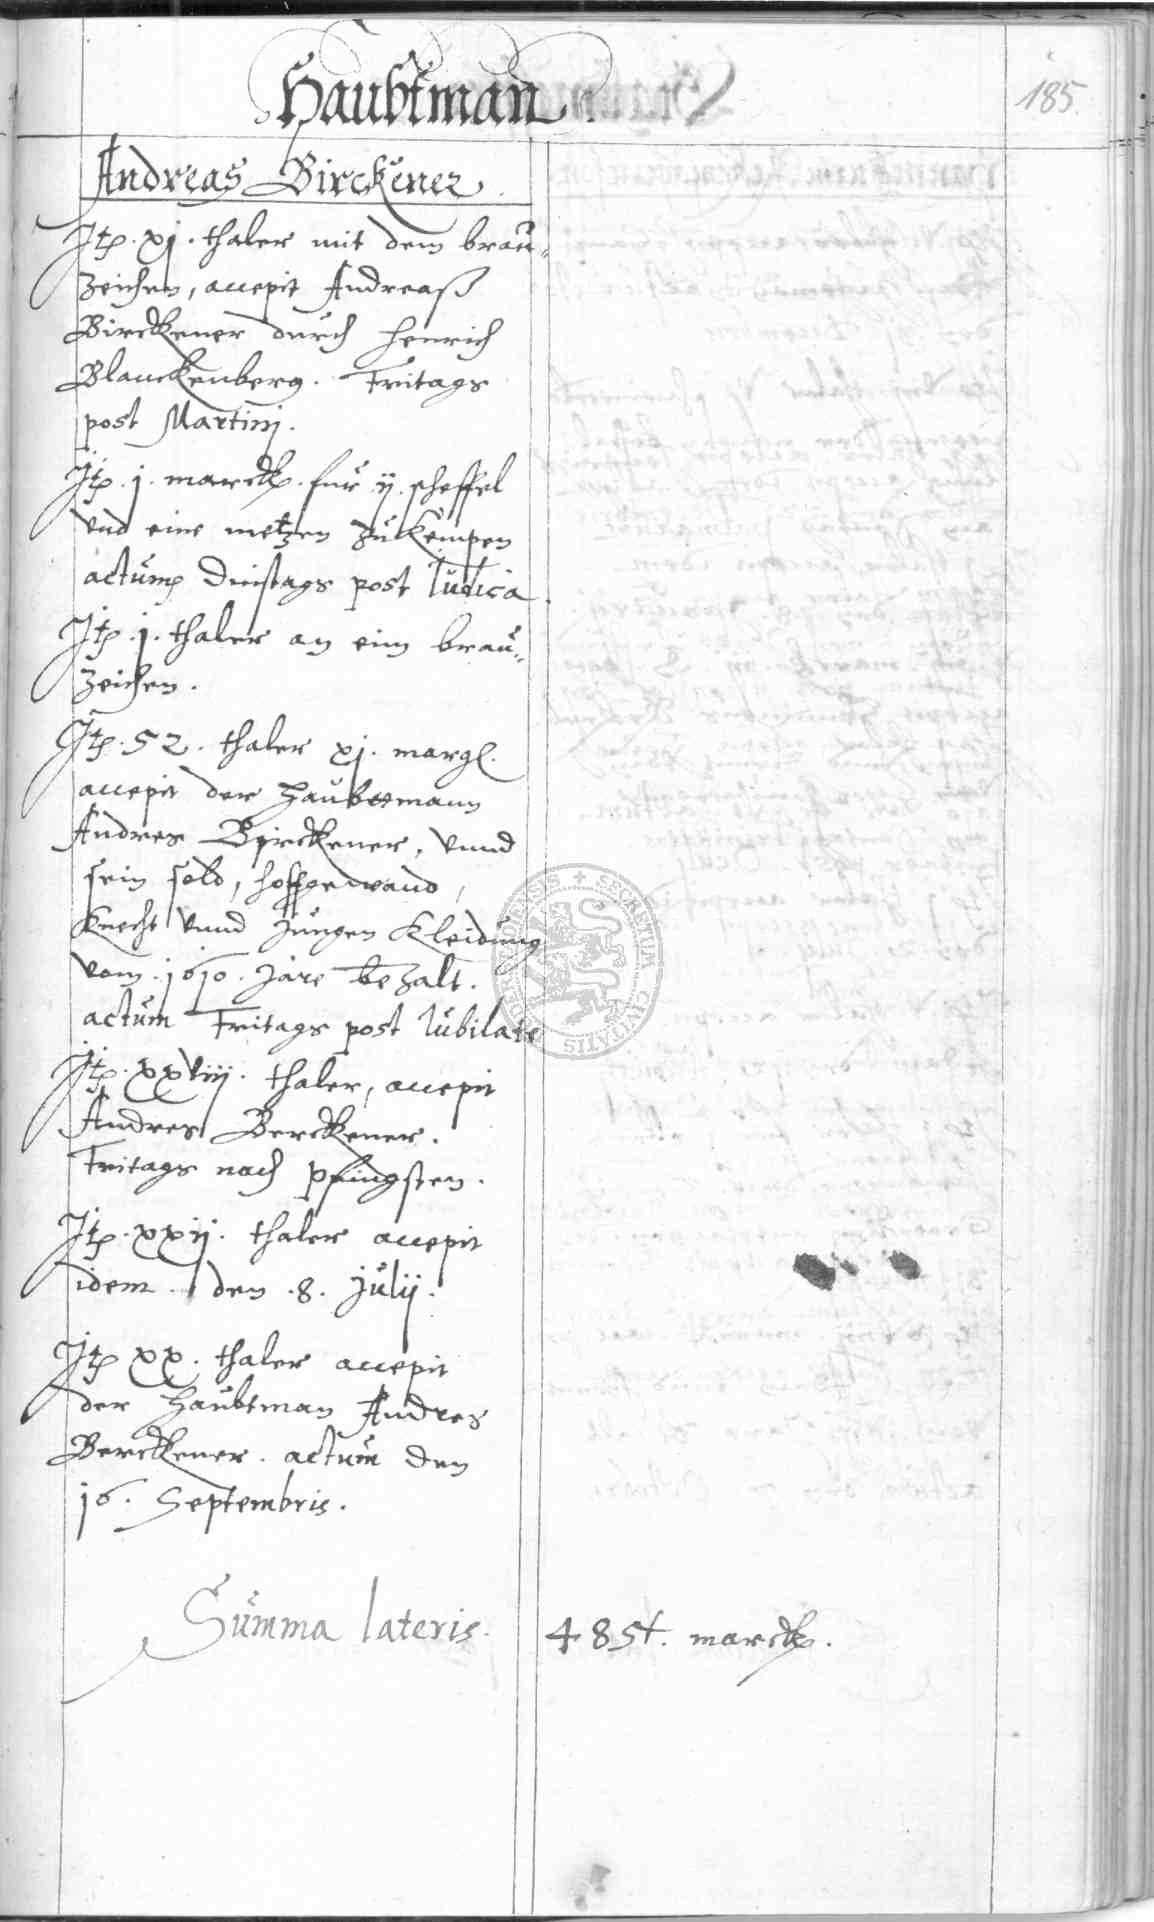 Haubtman
185.
Andreas Birckener
Jtp. xj. thaler mit dem brau-
zeichen, accepit Andreaß
Birckener durch Henrich
Blanckenberg. Fritags
post Martinj.
Jtp. j. marck. fur ij. scheffel
vnd eine metzen zu Kempen
actum dinstags post Iudica.
Jtp. j. thaler an eim brau-
zeichen.
Jtp. 52. thaler xj. margl.
accepit der Haubttmann
Andres Birckener, vnnd
sein sold, hoffgewand,
Knecht vnnd Jungen Kleidung
vom. 1610. Jare bezalt.
actum Fritags post Iubilate
Jtp. xxviij. thaler, accepit
Andres Berckener.
Fritags nach Pfingsten.
Jtp. xxij. thaler accepit
idem. den. 8. Julij.
Jtp xx. thaler accepit
der Haubtman Andres
Berckener. actum den
16. Septembris.
Summa lateris. 485 t. marck.
SECRETUM CIVIUM